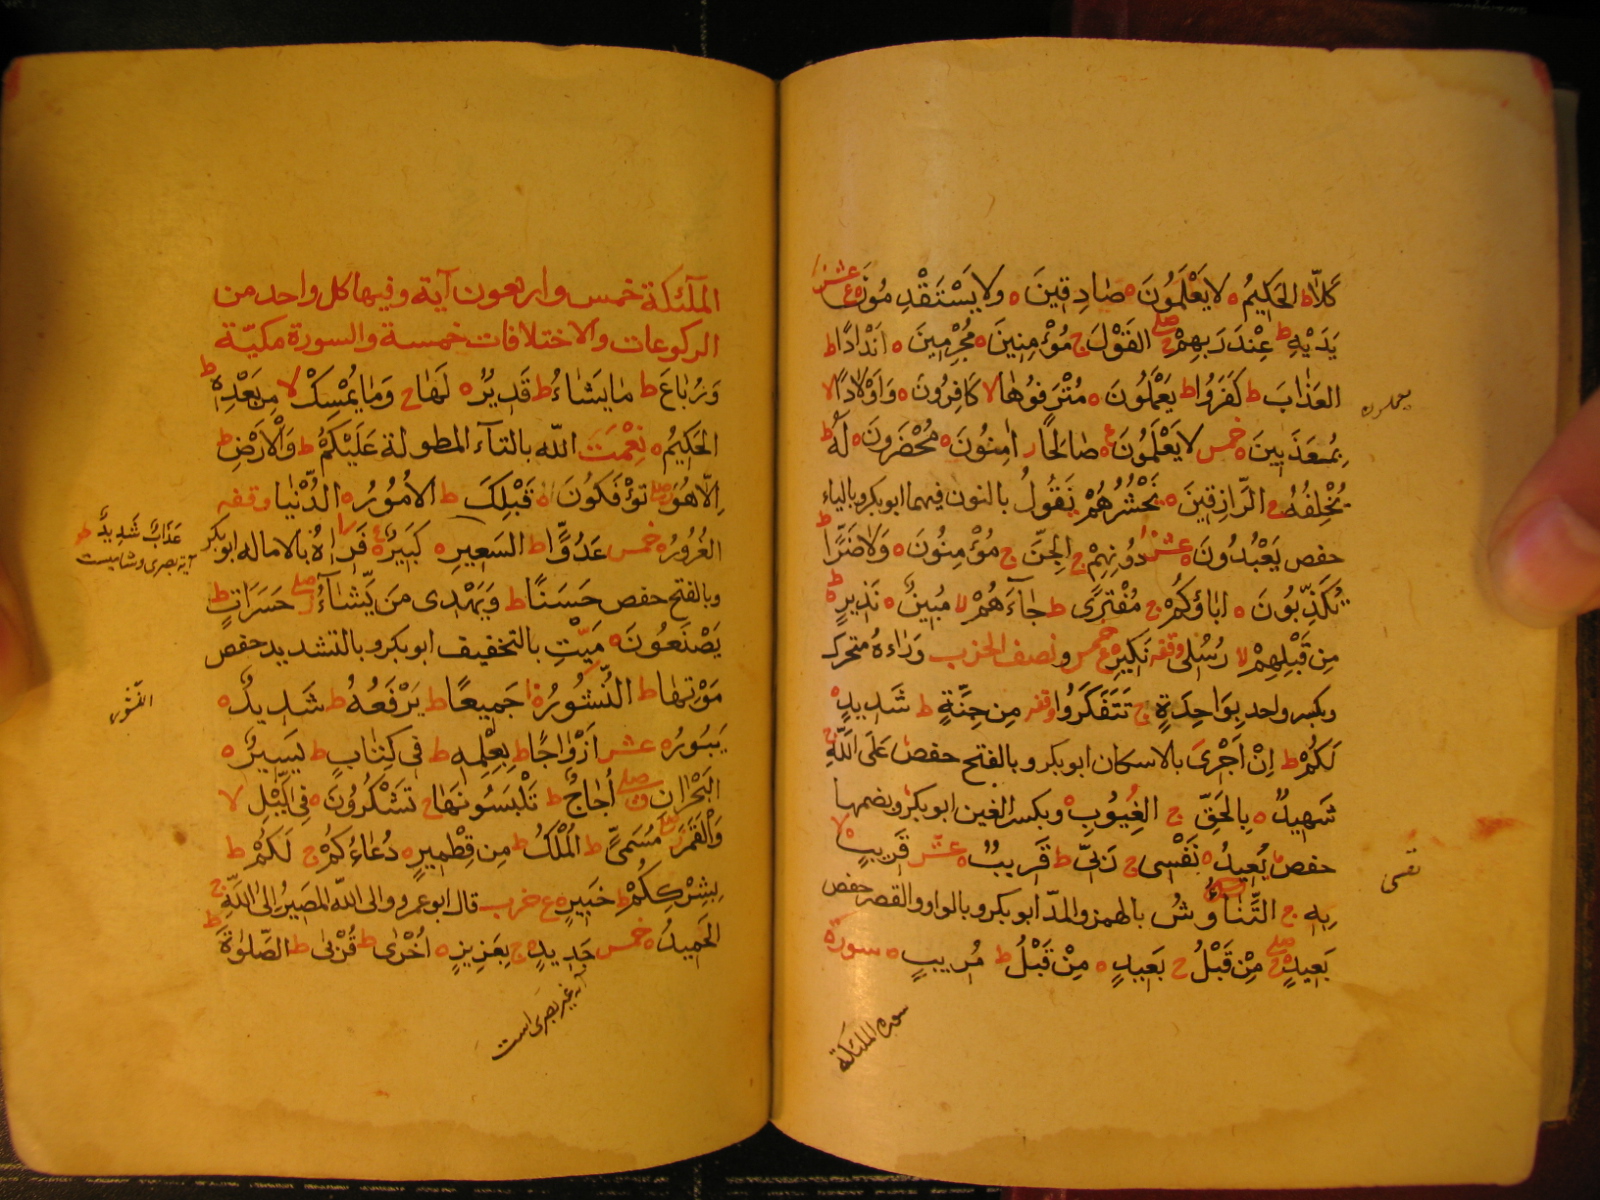 كَلَّا ط الحَكِيمُ ه لا يَعْلَمُونَ ه صَادِقِينَ ه وَلا يَسْتَقْدِمُونَ ه ع عشر
يَدَيْهِ ط عِنْدَ رَبِهِمْ ج صلى القَوْلَ ج مُؤْمِنِينَ ه مُجْرِمِينَ ه اَنْدَادًا ط
العَذَابَ ط كَفَرُوا ط يَعْمَلُونَ ه مُتْرَفُوهَا لا كَافِرُونَ ه وَاَوْلَادًا لا
يعملون
بِمُعَذَّبِينَ ه خمس لا يَعْلَمُونَ ه ع صَالِحًا ز اٰمِنُونَ ه مُحْضَرُونَ ه لَهُ ط
يُخْلِفُهُ ج الرَّازِقِينَ ه نَحْشُرُهُمْ نَقُولُ بالنون فيهما ابوبكر وبالياء
حفص يَعْبُدُونَ ه عشر دُونِهِمْ ج الجِنَّ ج مُؤْمِنُونَ ه وَلَا ضَرًّا ط
تُكَذِّبُونَ ه اٰبَاؤُكُمْ ج مُفْتَرًى ط جَآءَهُمْ لا مُبِينٌ ه نَذِيرٍ ط
مِن قَبْلِهِمْ لا رُسُلِى وقفه نَكِيرِ ه ع خمس ونصف الحزب وَرَاءه متحرك
وبكسر واحد بِوَاحِدَةٍ ج تَتَفَكَرُوا وقفه مِن جِنَّةٍ ط شَدِيدٍ ه
لَكُمْ ط اِنْ اَجْرِىَ بالاسكان ابوبكر وبالفتح حفص عَلَى اللّٰهِ ج
شَهِيدٌ ه بِالحَقِّ ج الغِيُوبِ وبكسر الغين ابوبكر وبضمها
حفص يُعِيدُ ه نَفْسِى ج رَبِّى ط قَرِيبٌ ه عشر قَرِيبٍ لا
نفسى
بِهِ ج التَّنَاؤُشُ بالهمز والمدّ ابوبكر وبالواو والقصر حفص
بَعِيدٍ ج صلى مِنْ قَبْلُ ج بَعِيدٍ ه مِنْ قَبْلُ ط مُرِيبٍ ه سورة
سوره الملئكة
الملٓئكة خمس واربعون آية وفيها كل واحد من
الركوعات والاختلافات خمسة والسورة مكيّة
وَرُبَاعَ ط مَا يَشَاءُ ط قَدِيرٌ ه لَهَا ج وَمَا يُمْسِكْ لا مِن بَعْدِهِ ط
الحَكِيمُ ه نِعْمَتَ اللّه بالتآء المطولة عَلَيْكُمْ ط وَالْاَرْضِ ط
اِلَّا هُوَ صلى تُؤْفَكُونَ ه قَبْلِكَ ط الاُمُورُ ه الدُّنْيَا وقفه
الغَرُورُ ه خمس عَدُوًّا ط السَعِيرِ ه كَبِيرٌ ه ع فَرَاٰهُ بالاماله ابوبكر
عَذَابٌ شَدِيدٌ ط
آية بصرى وشاميست
وبالفتح حفص حَسَنًا ط وَيَهْدِى مَن يَّشَآءُ صلى حَسَرَاتٍ ط
يَصْنَعُونَ ه مَيْتٍ بالتخفيف ابوبكر وبالتشديد حفص
مَوْتِهَا ط النُّشُورُ ه جَمِيعًا ط يَرْفَعُهُ ط شَدِيدٌ ه
النّشور
يَبُورُ ه عشر اَزْوَاجًا ط بِعِلْمِهِ ط فِى كِتَابٍ ط يَسِيرٌ ه
البَحْرَانِ صلى اُجَاجٌ ط تَلْبَسُونَهَا ج تَشْكُرُونَ ه فِى الَّيْلِ لا
وَالقَمَرَ صلى مُسَمًّى ط المُلْكُ ط مِن قِطْمِيرٍ ه دُعَاءَكُمْ ج لَكُمْ ط
بِشِرْكِكُمْ ط خَبِيرٍ ه ع حزب قال ابوعمرو والى اللّه المَصِيرُ اِلَى اللّٰهِ ج
الحَمِيدُ ه خمس جَدِيدٍ ه ج بِعَزِيزٍ ه اُخْرَى ط قُرْبَى ط الصَّلٰوةَ ط
آية غير بصرى است